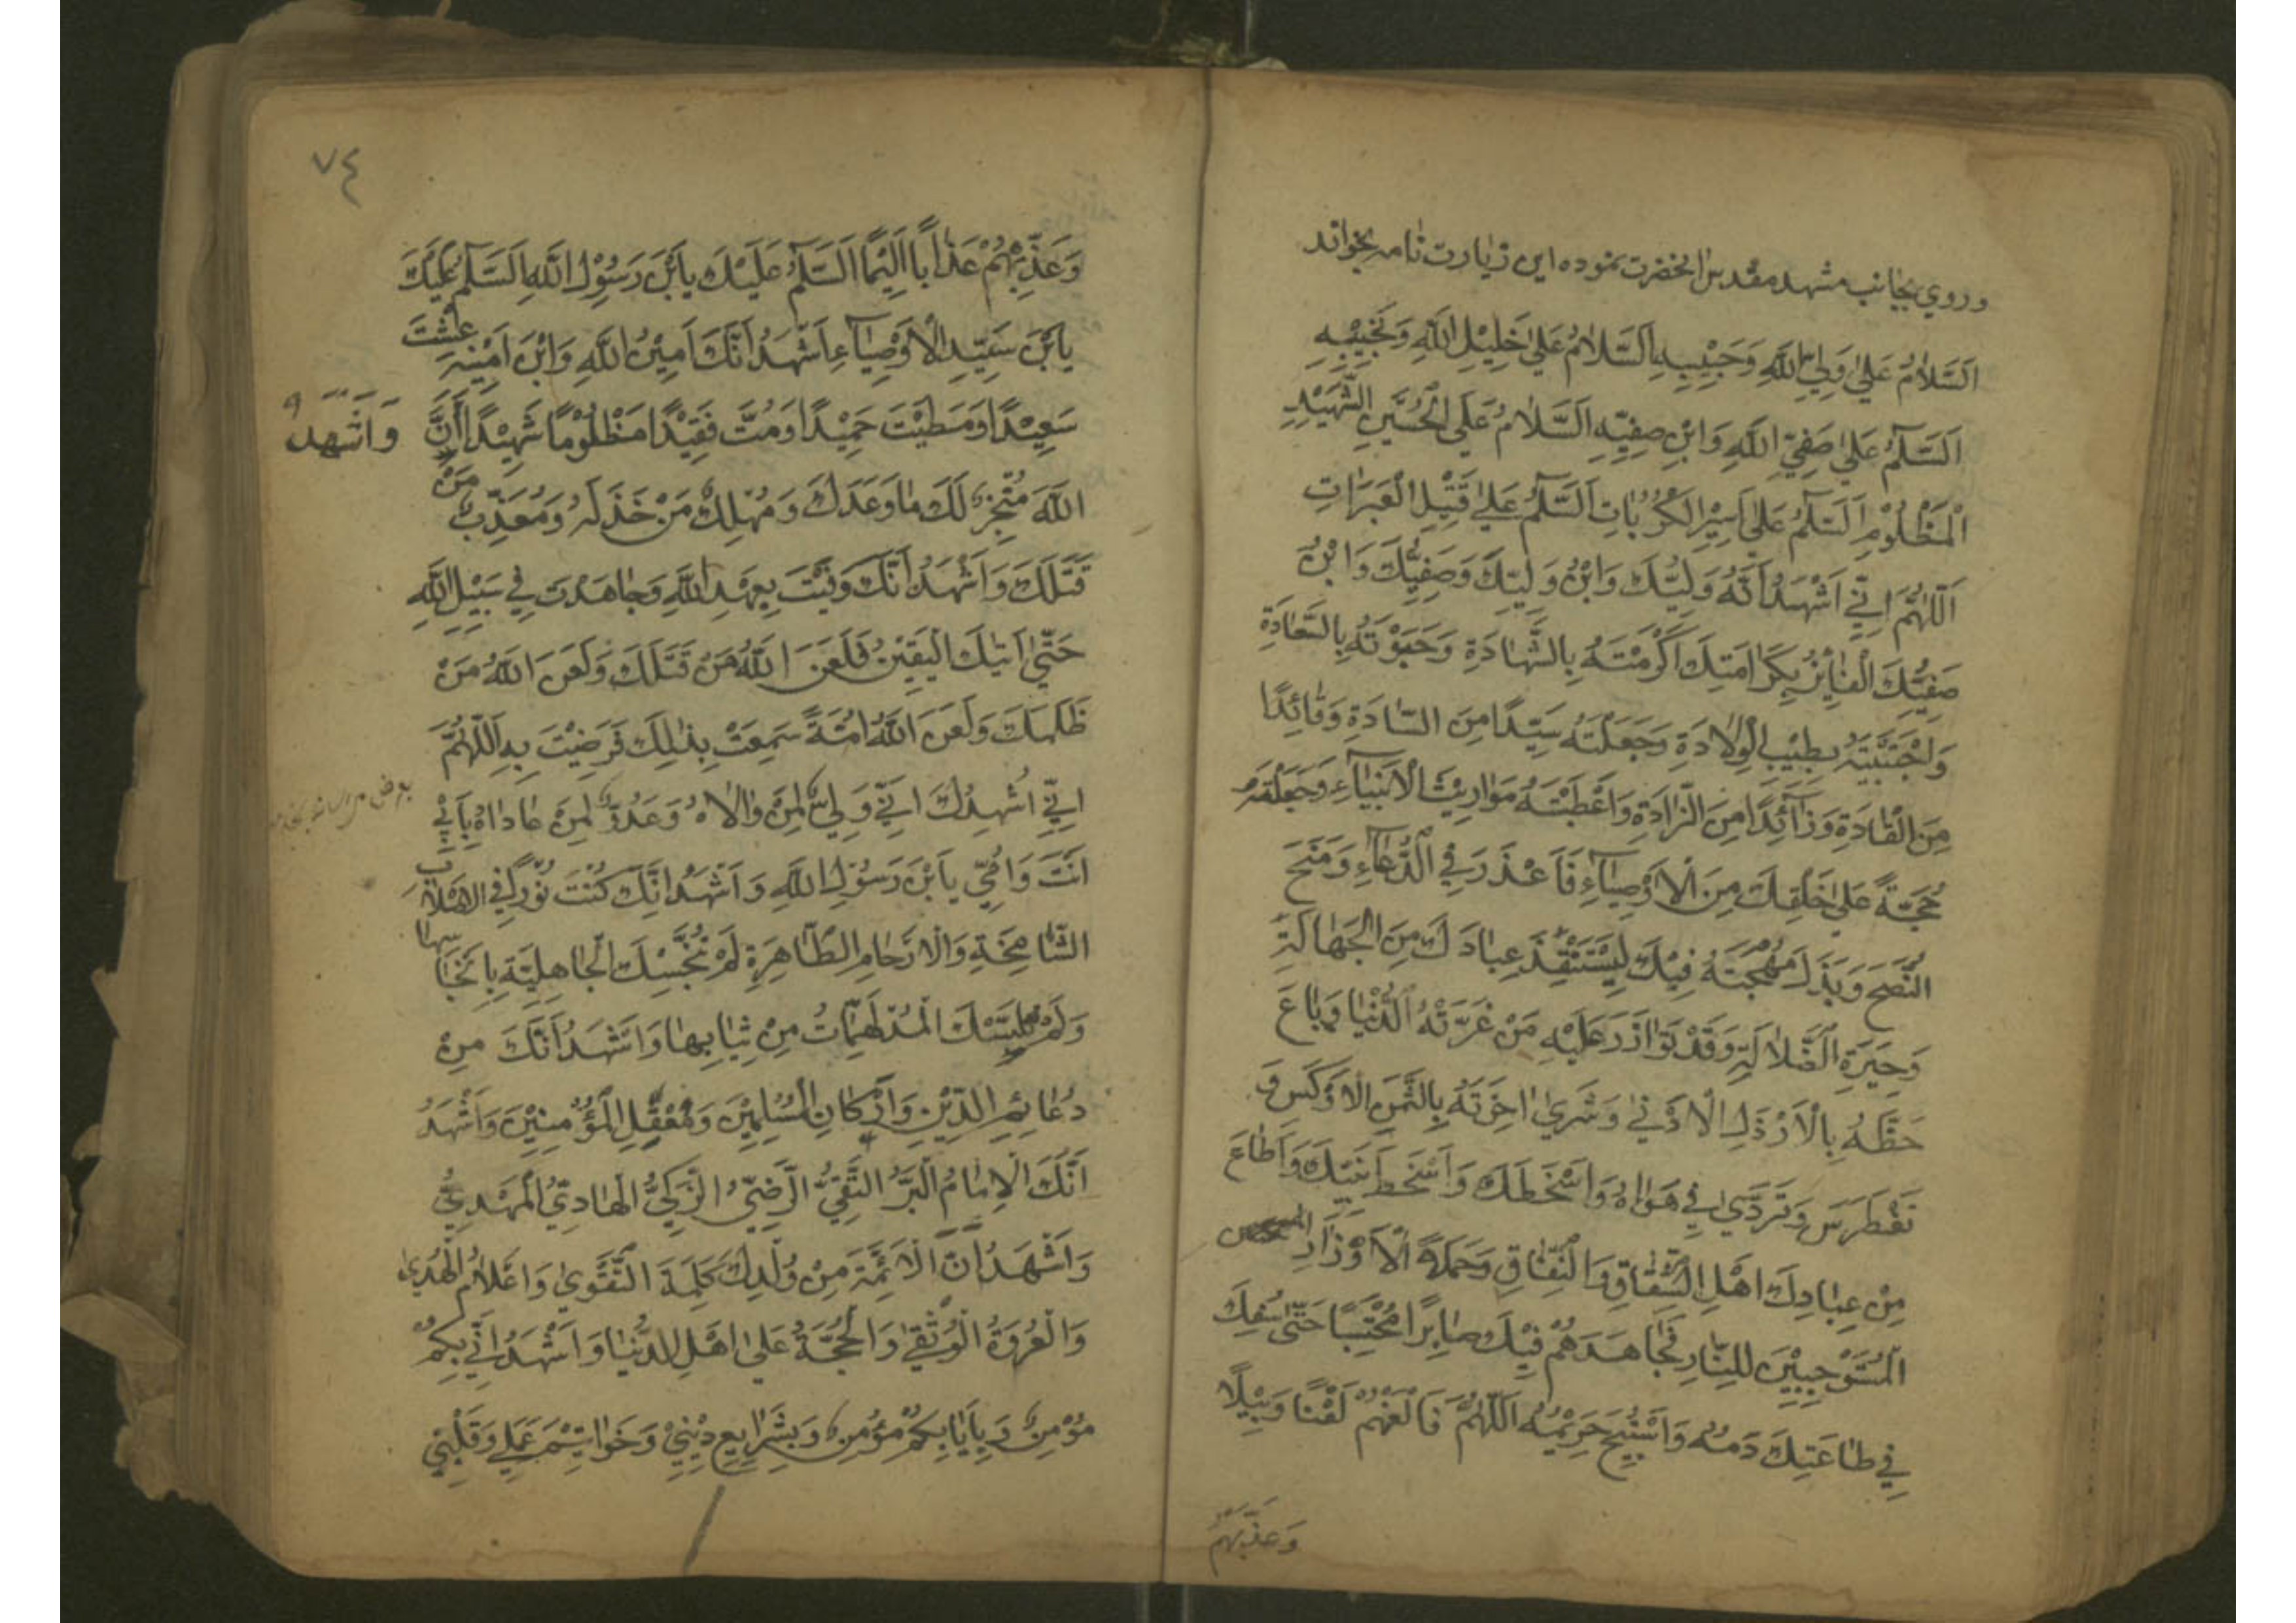 و روي بجانب مشهد مقدس انحضرت نموده اين زيارت نامه بخواند
اَلسَّلامُ عَلىٰ وَلِيِّ اللّٰهِ وَحَبِيْبِهِ اَلسَّلامُ عَلىٰ خَلِيْلِ اللّٰهِ وَنَجِيْبِهِ
اَلسَّلٰمُ عَلىٰ صَفِيِّ اللّٰهِ وَابْنِ صَفِيِّهِ اَلسَّلامُ عَلَى الْحُسَيْنِ الشَّهِيْدِ
الْمَظْلُوْمِ اَلسَّلٰمُ عَلىٰ اَسِيْرِ الْكُرُبَاتِ اَلسَّلٰمُ عَلىٰ قَتِيْلِ الْعَبَرَاتِ
اَللّٰهُمَّ اِنِّي اَشْهَدُ اَنَّهُ وَلِيُّكَ وَابْنُ وَلِيِّكَ وَصَفِيُّكَ وَابْنُ
صَفِيِّكَ الْفَايِزُ بِكَرَامَتِكَ اَكْرَمْتَهُ بِالشَّهَادَةِ وَحَبَوْتَهُ بِالسَّعَادَةِ
وَاجْتَبَيْتَهُ بِطِيْبِ الْوِلَادَةِ وَجَعَلْتَهُ سَيِّدًا مِنَ السَّادَةِ وَقَائِدًا
مِنَ الْقَادَةِ وَزَائِدًا مِنَ الزَّادَةِ وَاَعْطَيْتَهُ مَوَارِيْثَ الْاَنْبِيَاءِ وَجَعَلْتَهُ
حُجَّةً عَلىٰ خَلْقِكَ مِنَ الْاَوْصِيَاءِ فَاَعْذَرَ فِي الدُّعَاءِ وَمَنَحَ
النُّصْحَ وَبَذَلَ مُهْجَتَهُ فِيْكَ لِيَسْتَنْقِذَ عِبَادَكَ مِنَ الْجَهَالَةِ
وَحَيْرَةِ الضَّلَالَةِ وَقَدْ تَوَازَرَ عَلَيْهِ مَنْ غَرَّتْهُ الدُّنْيَا وَبَاعَ
حَظَّهُ بِالْاَرْذَلِ الْاَدْنىٰ وَشَرىٰ اٰخِرَتَهُ بِالثَّمَنِ الْاَوْكَسِ وَ
تَغَطْرَسَ وَتَرَدّىٰ فِي هَوَاهُ وَاَسْخَطَكَ وَاَسْخَطَ نَبِيَّكَ وَاَطَاعَ
مِنْ عِبَادِكَ اَهْلَ الشِّقَاقِ وَالنِّفَاقِ وَحَمَلَةَ الْاَوْزَارِ
الْمُسْتَوْجِبِيْنَ لِلنَّارِ فَجَاهَدَهُمْ فِيْكَ صَابِرًا مُحْتَسِبًا حَتّىٰ سُفِكَ
فِي طَاعَتِكَ دَمُهُ وَاسْتُبِيْحَ حَرِيْمُهُ اَللّٰهُمَّ فَالْعَنْهُمْ لَعْنًا وَبِيْلًا
وَعَذِّبْهُمْ
٧٤
وَعَذِّبْهُمْ عَذَابًا اَلِيْمًا اَلسَّلٰمُ عَلَيْكَ يَابْنَ رَسُوْلِ اللّٰهِ اَلسَّلٰمُ عَلَيْكَ
يَابْنَ سَيِّدِ الْاَوْصِيَاءِ اَشْهَدُ اَنَّكَ اَمِيْنُ اللّٰهِ وَابْنُ اَمِيْنِهِ عِشْتَ
سَعِيْدًا وَمَضَيْتَ حَمِيْدًا وَمُتَّ فَقِيْدًا مَظْلُوْمًا شَهِيْدًا اَنَّ
وَاَشْهَدُ
اللّٰهَ مُنْجِزٌ لَكَ مَا وَعَدَكَ وَمُهْلِكٌ مَنْ خَذَلَكَ وَمُعَذِّبٌ مَنْ
قَتَلَكَ وَاَشْهَدُ اَنَّكَ وَفَيْتَ بِعَهْدِ اللّٰهِ وَجَاهَدْتَ فِي سَبِيْلِ اللّٰهِ
حَتّىٰ اَتٰيكَ الْيَقِيْنُ فَلَعَنَ اللّٰهُ مَنْ قَتَلَكَ وَلَعَنَ اللّٰهُ مَنْ
ظَلَمَكَ وَلَعَنَ اللّٰهُ اُمَّةً سَمِعَتْ بِذٰلِكَ فَرَضِيَتْ بِهِ اَللّٰهُمَّ
اِنِّي اُشْهِدُكَ اَنِّي وَلِيٌّ لِمَنْ وَالَاهُ وَعَدُوٌّ لِمَنْ عَادَاهُ بِاَبِي
اَنْتَ وَاُمِّي يَابْنَ رَسُوْلِ اللّٰهِ وَاَشْهَدُ اَنَّكَ كُنْتَ نُوْرًا فِي الْاَصْلَابِ
الشَّامِخَةِ وَالْاَرْحَامِ الطَّاهِرَةِ لَمْ تُنَجِّسْكَ الْجَاهِلِيَّةُ بِاَنْجَاسِهَا
وَلَمْ تُلْبِسْكَ الْمُدْلَهِمَّاتُ مِنْ ثِيَابِهَا وَاَشْهَدُ اَنَّكَ مِنْ
دَعَائِمِ الدِّيْنِ وَاَرْكَانِ الْمُسْلِمِيْنَ وَمَعْقِلِ الْمُؤْمِنِيْنَ وَاَشْهَدُ
اَنَّكَ الْاِمَامُ الْبَرُّ التَّقِيُّ الرَّضِيُّ الزَّكِيُّ الْهَادِيُّ الْمَهْدِيُّ
وَاَشْهَدُ اَنَّ الْاَئِمَّةَ مِنْ وُلْدِكَ كَلِمَةُ التَّقْوىٰ وَاَعْلَامُ الْهُدىٰ
وَالْعُرْوَةُ الْوُثْقىٰ وَالْحُجَّةُ عَلىٰ اَهْلِ الدُّنْيَا وَاَشْهَدُ اَنِّي بِكُمْ
مُؤْمِنٌ وَبِاِيَابِكُمْ مُؤْمِنٌ وَبِشَرَايِعِ دِيْنِيْ وَخَوَاتِيْمِ عَمَلِي وَقَلْبِيْ